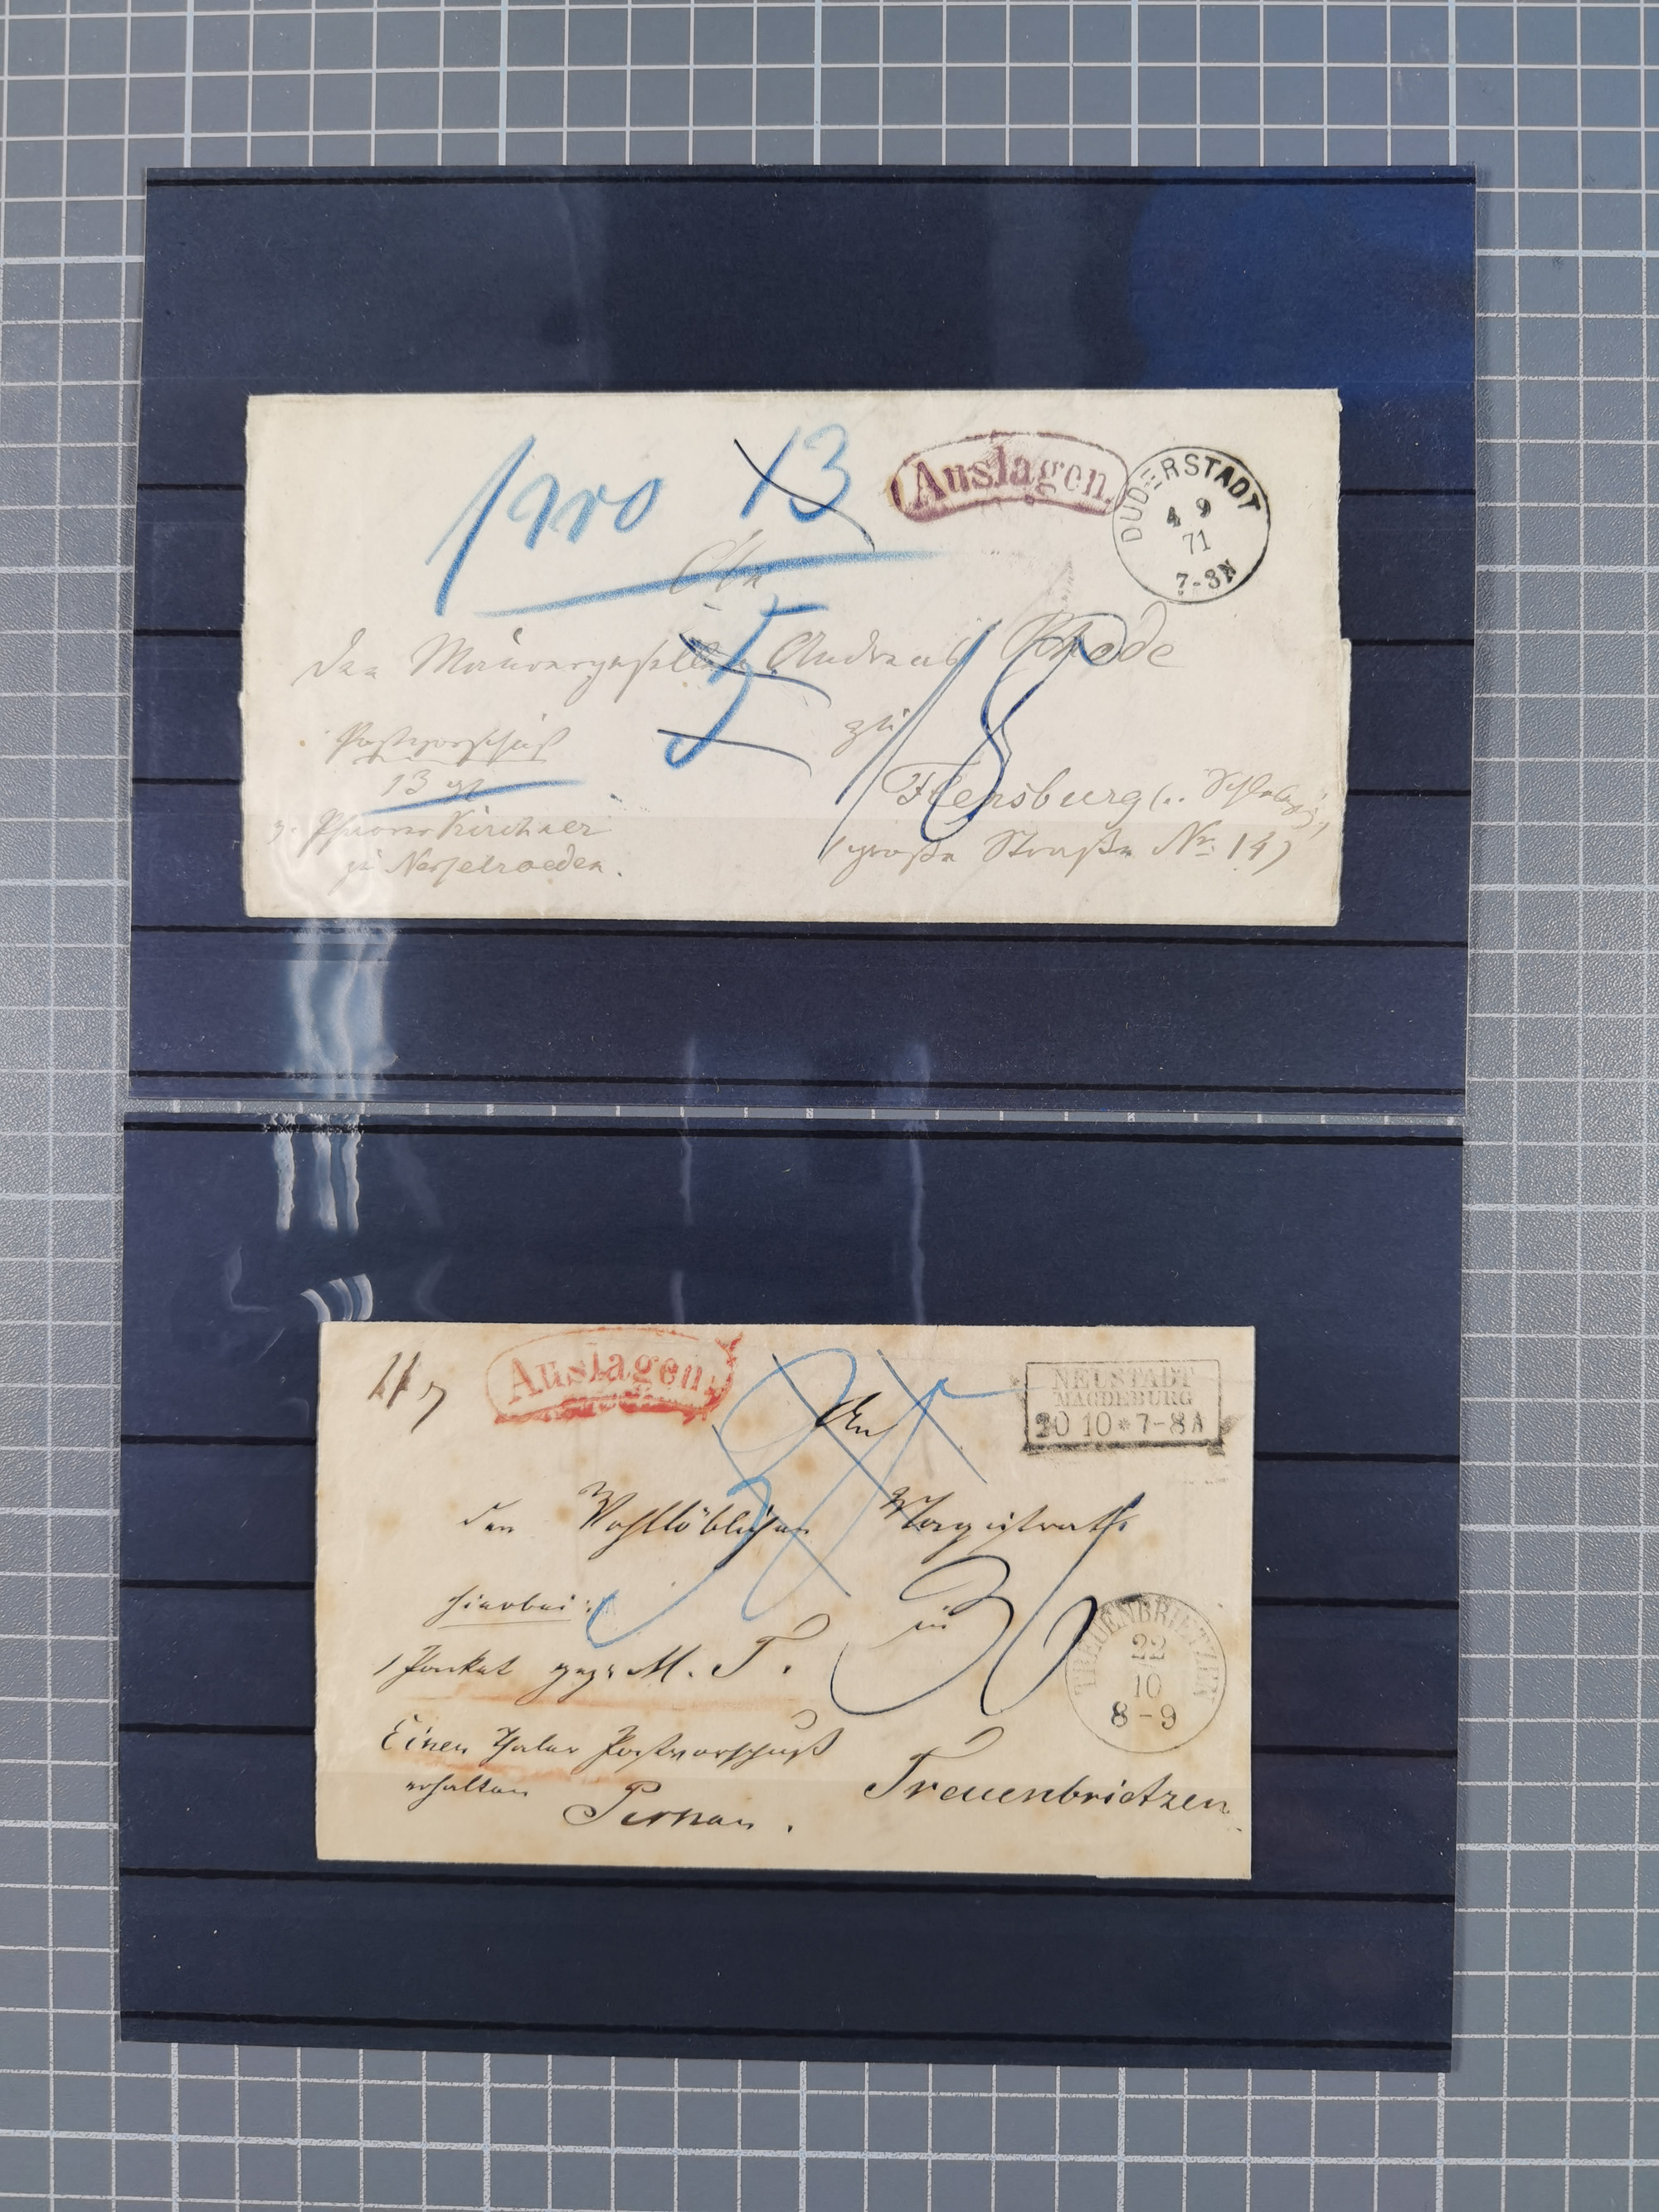 pro 13
Auslagen
DUDERSTADT
4 9
71
7-8 N
An
den Maurergesellen Andreas Rhode
5
18
zu
Postvorschuß
13 gr
Flensburg (.. Schleswig,
große Straße Nr. 14)
Pfarrer Kirchner
zu Nesselroeden.
Auslagen
NEUSTADT
MAGDEBURG
20 10 * 7-8 A
An
den Wohllöblichen Magistrat
hierbei:
in
36
1 Packet gez: M. T.
TREUENBRIETZEN
22
10
8-9
Einen Thaler Postvorschuß
erhalten
Treuenbrietzen